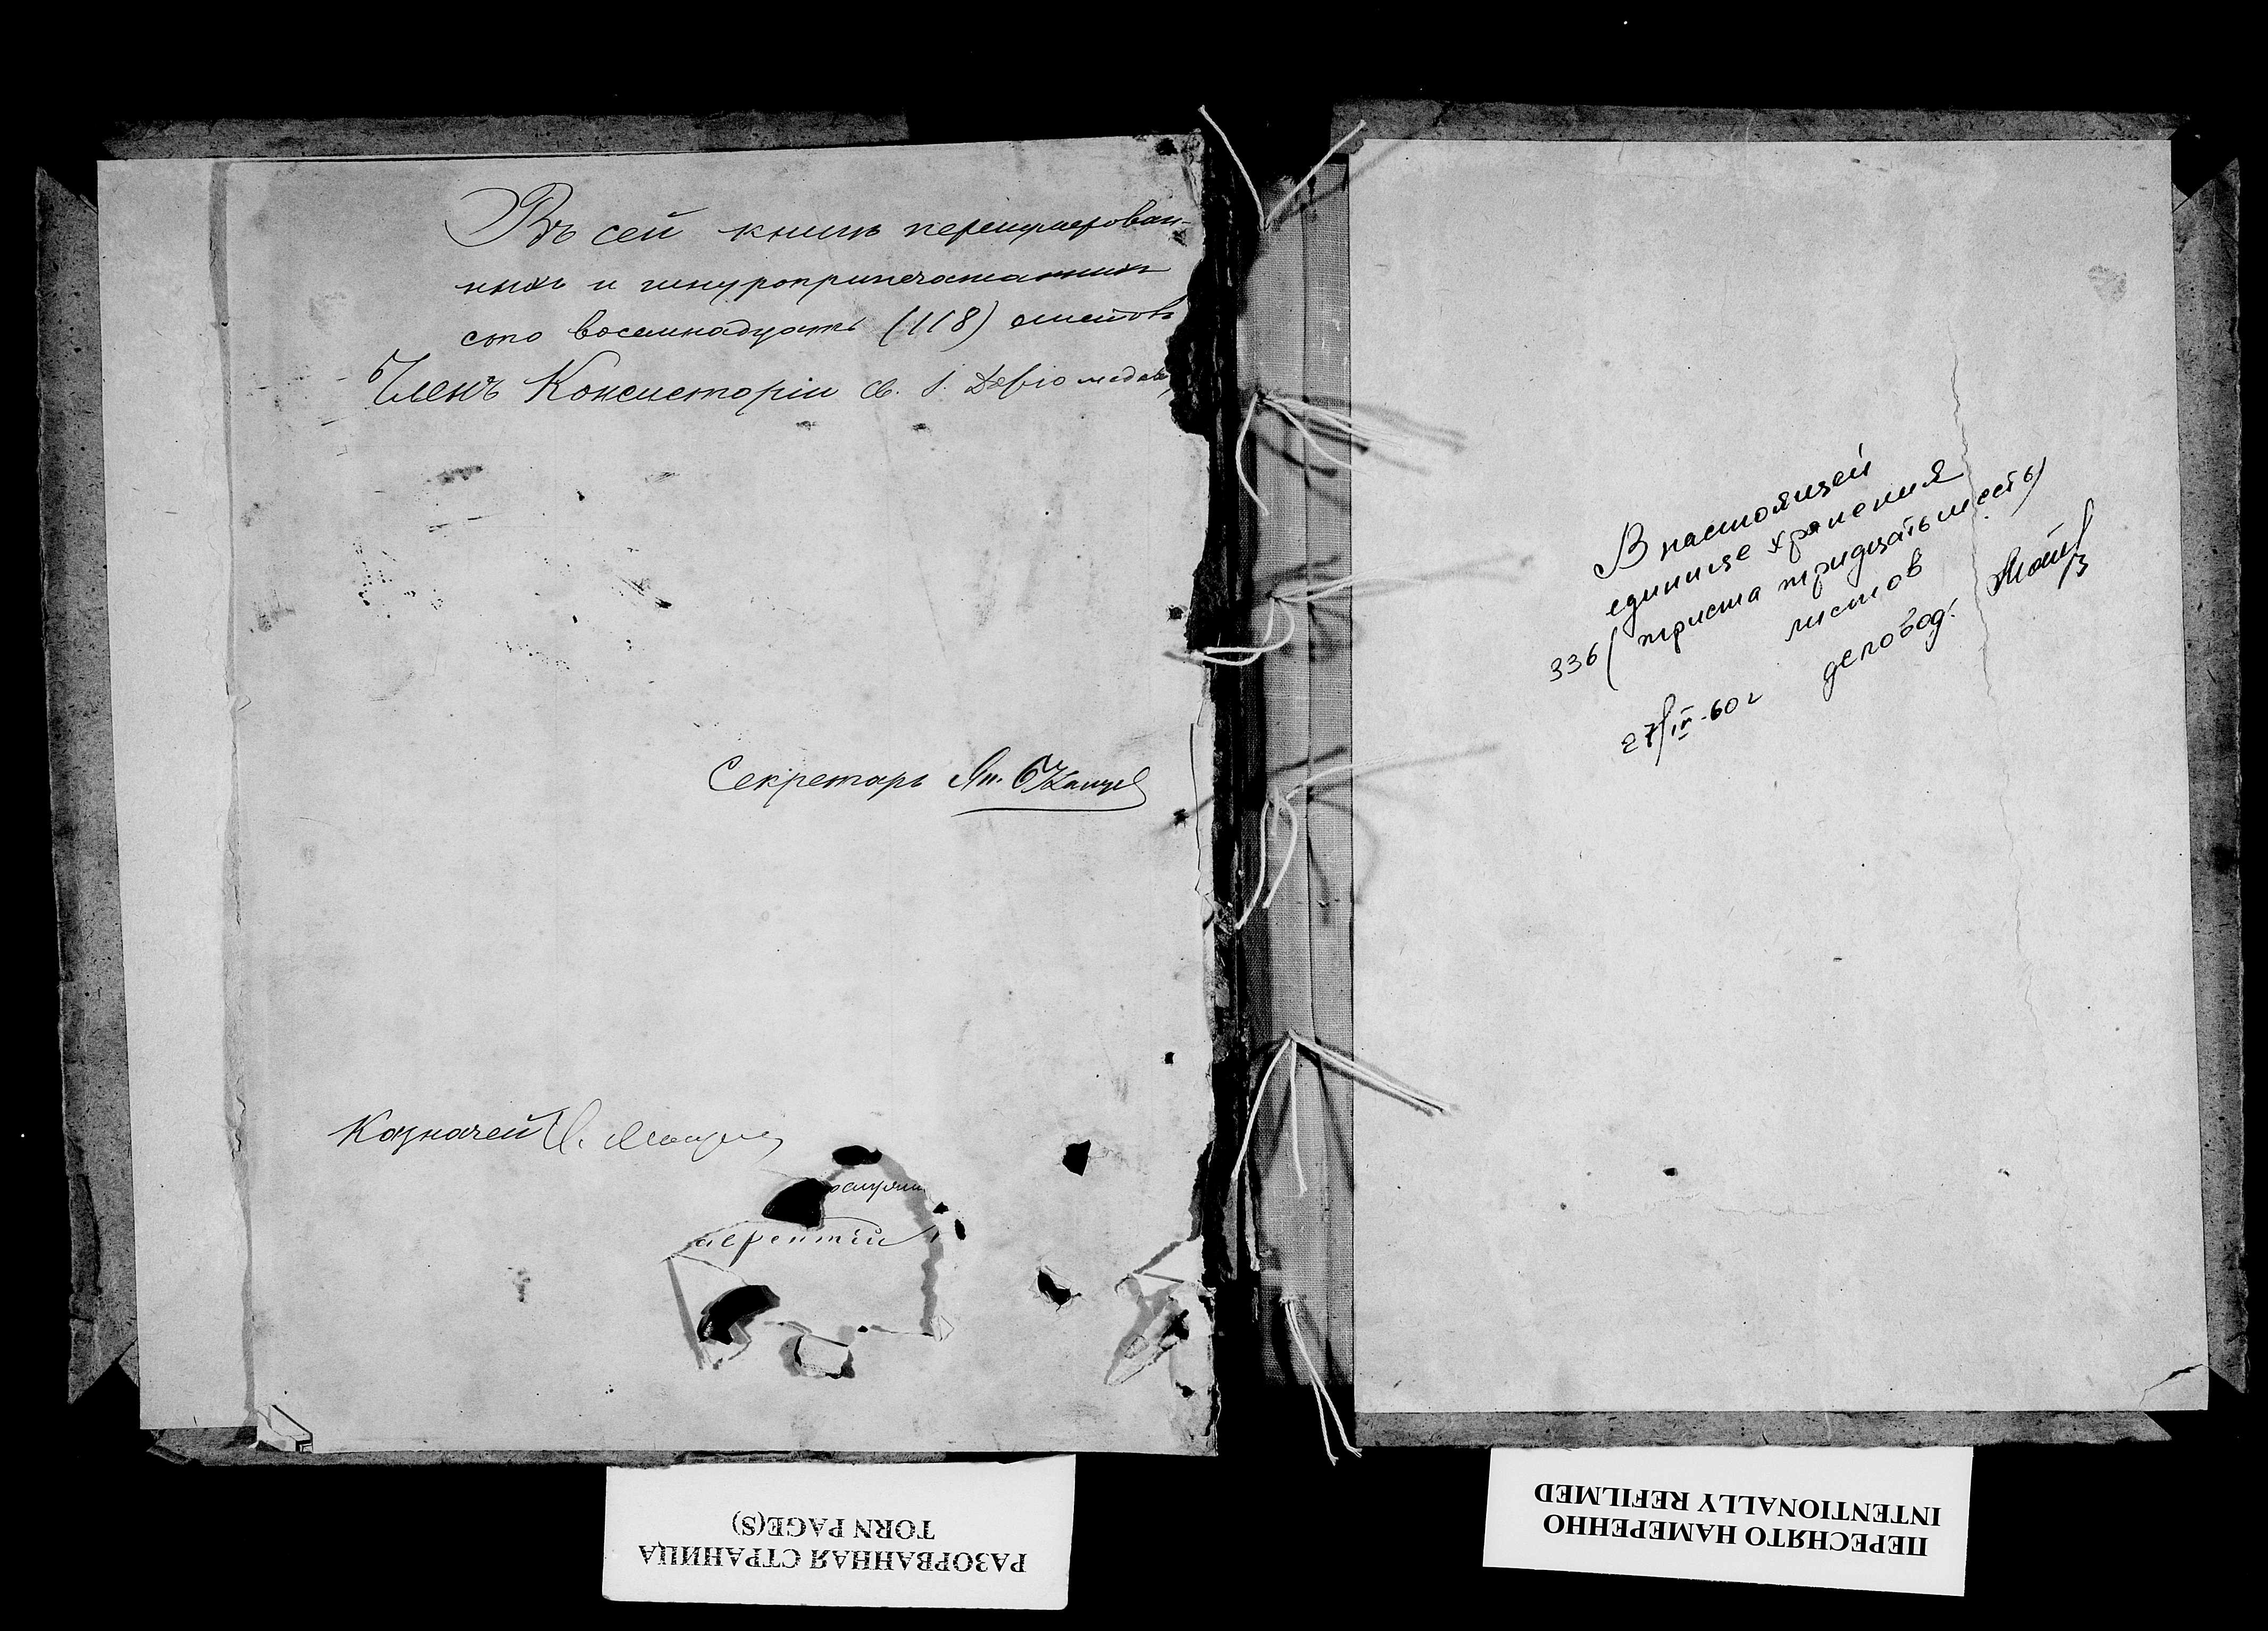 Въ сей книгѣ перенумерован-
ныхъ и шнуроприпечатанныхъ
сто восемнадцать (118) листовъ
Членъ Консисторіи Св. І.
Секретарь
Казначей
В настоящей
единице хранения
336 (триста тридцать шесть)
листов
27/IV-60 г
деловод.
РАЗОРВАННАЯ СТРАНИЦА
TORN PAGE(S)
ПЕРЕСНЯТО НАМЕРЕННО
INTENTIONALLY REFILMED